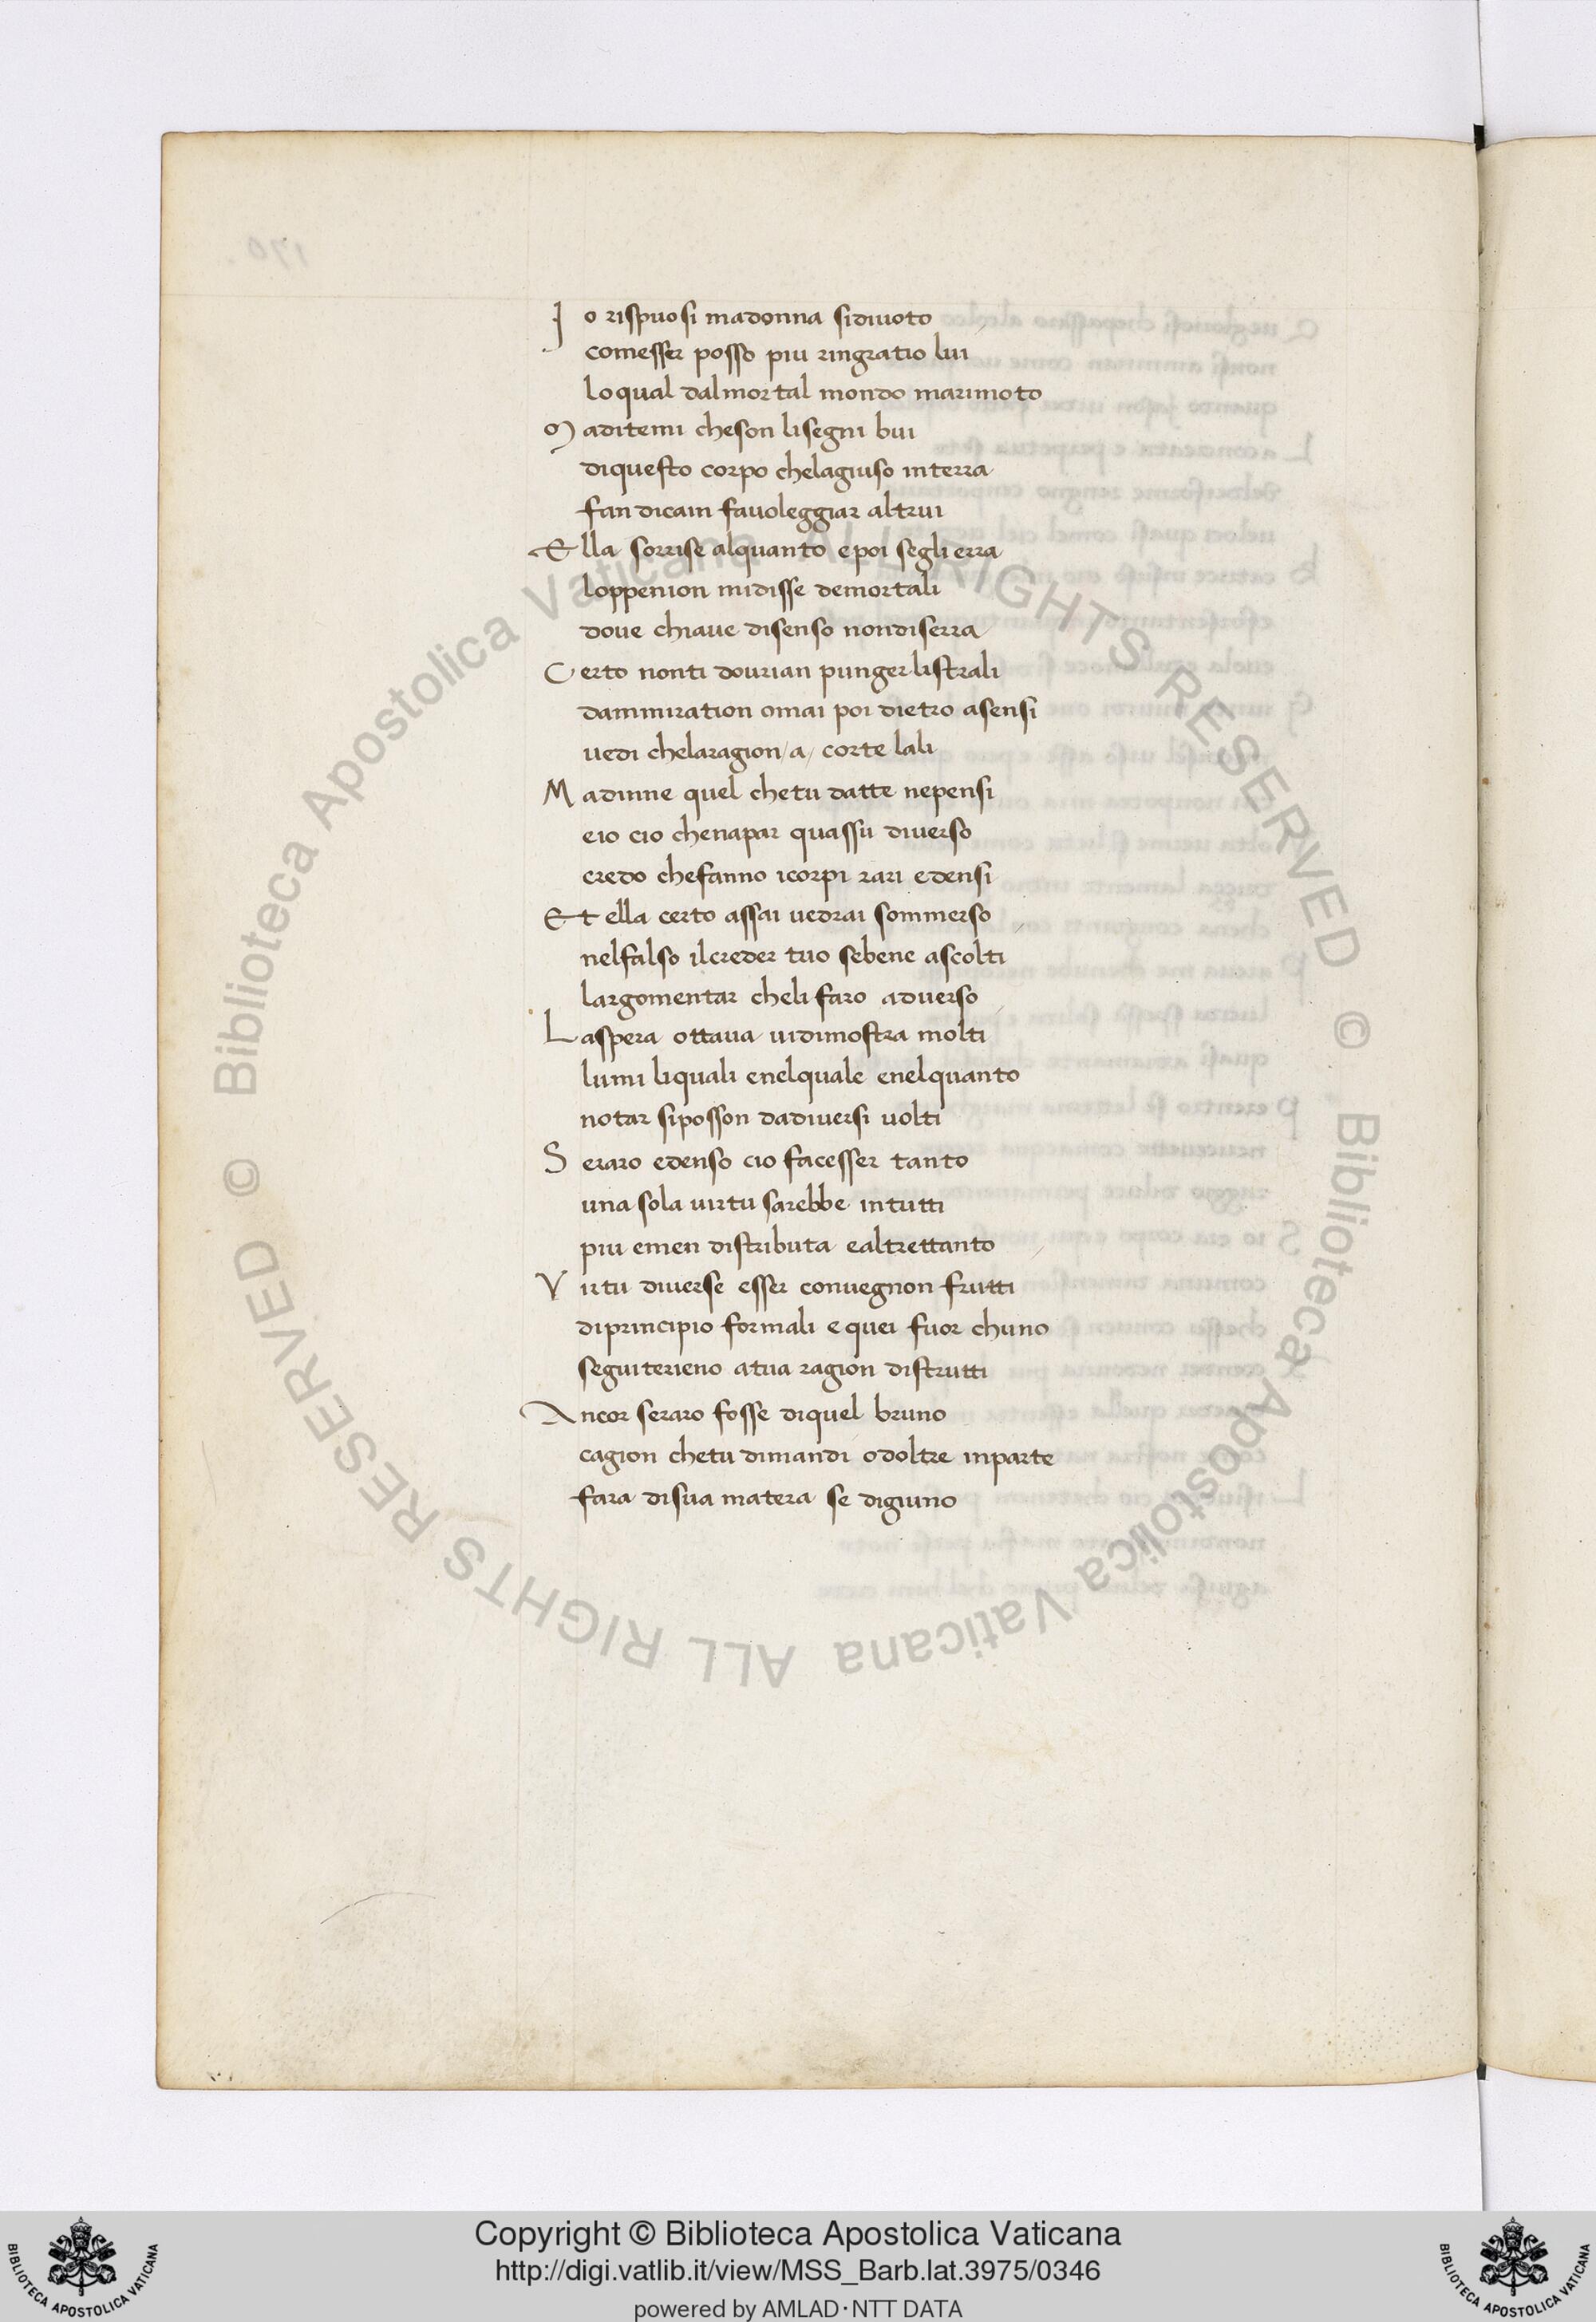 Io rispuosi madonna sidiuoto
comesser posso piu ringratio lui
loqual dalmortal mondo marimoto
Maditemi cheson lisegni bui
diquesto corpo chelagiuso interra
fan dicain fauoleggiar altrui
Ella sorrise alquanto epoi segli erra
loppenion midisse demortali
doue chiaue disenso nondiserra
Certo nonti dourian punger listrali
dammiration omai poi dietro asensi
uedi chelaragion/a/ corte lali
Madimne quel chetu datte nepensi
eio cio chenapar quassu diuerso
credo chefanno icorpi rari edensi
Et ella certo assai uedrai sommerso
nelfalso ilcreder tuo sebene ascolti
largomentar cheli faro aduerso
Laspera ottaua uidimostra molti
lumi liquali enelquale enelquanto
notar siposson dadiuersi uolti
Seraro edenso cio facesser tanto
una sola uirtu sarebbe intutti
piu emen distributa ealtrettanto
Virtu diuerse esser conuegnon frutti
diprincipio formali e quei fuor chuno
seguiterieno atua ragion distrutti
Ancor seraro fosse diquel bruno
cagion chetu dimandi odoltre inparte
fara disua matera se digiuno
170.
© Biblioteca Apostolica Vaticana ALL RIGHTS RESERVED
© Biblioteca Apostolica Vaticana ALL RIGHTS RESERVED
Copyright © Biblioteca Apostolica Vaticana
http://digi.vatlib.it/view/MSS_Barb.lat.3975/0346
powered by AMLAD·NTT DATA
BIBLIOTECA APOSTOLICA VATICANA
BIBLIOTECA APOSTOLICA VATICANA